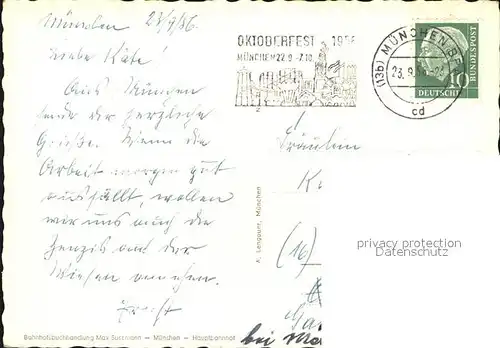 München 23/9/56.
Liebe Käte!
Aus München
sende dir herzliche
Grüße. Wenn die
Arbeit morgen gut
ausfällt, wollen
wir uns auch die
auf der
Wiesen ansehen.
OKTOBERFEST 1956
MÜNCHEN 22.9.-7.10.
(13b) MÜNCHEN
23.9.
cd
10
DEUTSCHE
BUNDESPOST
Fräulein
K
(16)
privacy protection
VARIAGE.COM
bei Ma
A. Lengauer, München
Bahnhofsbuchhandlung Max Sussmann — München — Hauptbahnhof